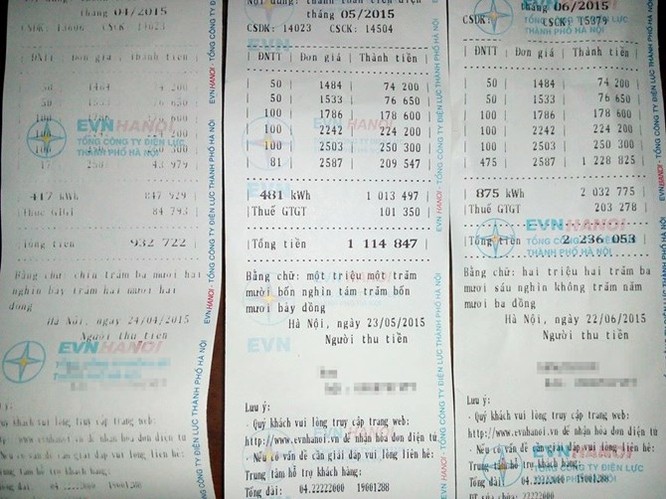 tháng 04/2015
CSDK: 13606 CSCK: 14023
ĐNTT Đơn giá Thành tiền
50 1484 74 200
50 76 650
100
100
100
17 2587 43 979
417 kWh 847 929
Thuế GTGT 84 793
Tổng tiền 932 722
Bằng chữ: chín trăm ba mươi hai
nghìn bảy trăm hai mươi hai
đồng
Hà Nội, ngày 24/04/2015
Người thu tiền
EVNHANOI
TỔNG CÔNG TY ĐIỆN LỰC
THÀNH PHỐ HÀ NỘI
EVNHANOI
Quý khách vui lòng truy cập trang web:
http://www.evnhanoi.vn để nhận hóa đơn điện tử
Nếu có vấn đề cần giải đáp vui lòng liên hệ:
Trung tâm hỗ trợ khách hàng:
Tổng đài: 04.22222000 19001288
EVNHANOI - TỔNG CÔNG TY ĐIỆN LỰC THÀNH PHỐ HÀ NỘI
Nội dung: thanh toán tiền điện
tháng 05/2015
CSDK: 14023 CSCK: 14504
ĐNTT Đơn giá Thành tiền
50 1484 74 200
50 1533 76 650
100 1786 178 600
100 2242 224 200
100 2503 250 300
81 2587 209 547
481 kWh 1 013 497
Thuế GTGT 101 350
Tổng tiền 1 114 847
Bằng chữ: một triệu một trăm
mười bốn nghìn tám trăm bốn
mươi bảy đồng
Hà Nội, ngày 23/05/2015
Người thu tiền
EVN
EVN
Lưu ý:
- Quý khách vui lòng truy cập trang web:
http://www.evnhanoi.vn để nhận hóa đơn điện tử
- Nếu có vấn đề cần giải đáp vui lòng liên hệ:
Trung tâm hỗ trợ khách hàng:
Tổng đài: 04.22222000 19001288
EVNHANOI - TỔNG CÔNG TY ĐIỆN LỰC THÀNH PHỐ HÀ NỘI
tháng 06/2015
CSDK: 14504 CSCK: 15379
ĐNTT Đơn giá Thành tiền
50 1484 74 200
50 1533 76 650
100 1786 178 600
100 2242 224 200
100 2503 250 300
475 2587 1 228 825
875 kWh 2 032 775
Thuế GTGT 203 278
Tổng tiền 2 236 053
Bằng chữ: hai triệu hai trăm ba
mươi sáu nghìn không trăm năm
mươi ba đồng
Hà Nội, ngày 22/06/2015
Người thu tiền
EVNHANOI
TỔNG CÔNG TY ĐIỆN LỰC
THÀNH PHỐ HÀ NỘI
Lưu ý:
- Quý khách vui lòng truy cập trang web:
http://www.evnhanoi.vn để nhận hóa đơn điện tử
- Nếu có vấn đề cần giải đáp vui lòng liên hệ:
Trung tâm hỗ trợ khách hàng:
Tổng đài: 04.22222000 19001288
EVNHANOI - TỔNG CÔNG TY ĐIỆN LỰC THÀNH PHỐ HÀ NỘI